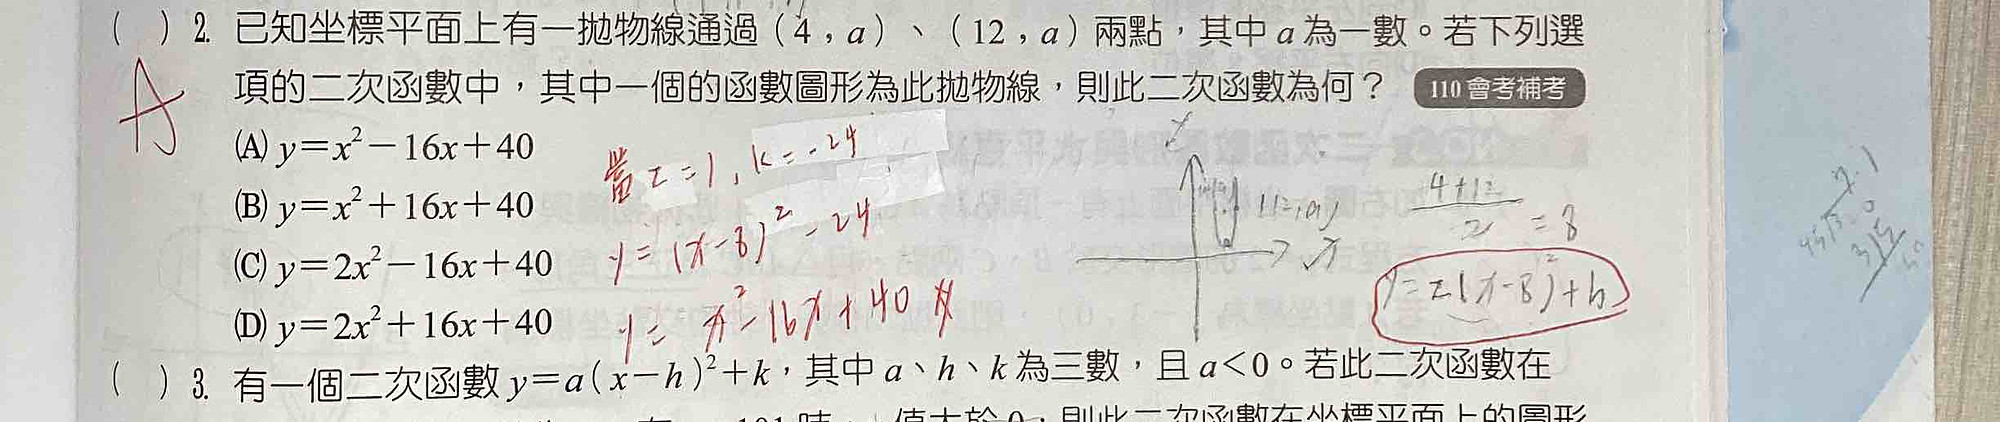 ( ) 2. 已知坐標平面上有一拋物線通過(4,a)、(12,a)兩點,其中a為一數。若下列選
項的二次函數中,其中一個的函數圖形為此拋物線,則此二次函數為何? 110 會考補考
A
(A) y=x²-16x+40
(B) y=x²+16x+40
(C) y=2x²-16x+40
(D) y=2x²+16x+40
當z=1, k=-24
y=(x-8)²-24
y=x²-16x+40
x
(12,a)
4+12
2
=8
y=z(x-8)²+h
( ) 3. 有一個二次函數y=a(x-h)²+k,其中a、h、k為三數,且a<0。若此二次函數在